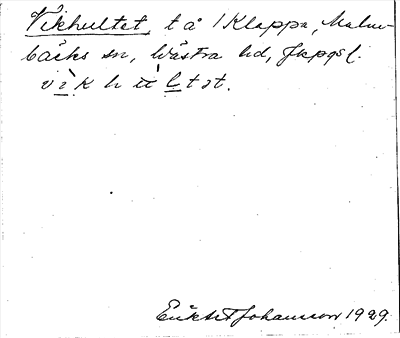 Vikhultet, t å 1 Klappa, Malm-
bäcks sn, Västra hd, Jkpgs l.
v i k h u l t ə t.
Erik Johansson 1929.